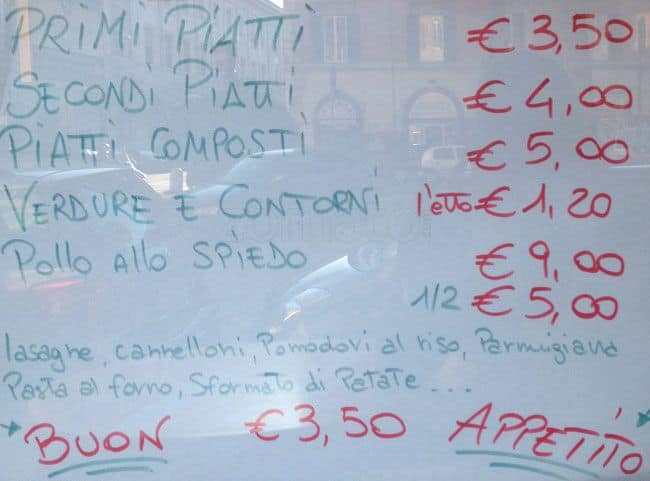 PRIMI PIATTI € 3,50
SECONDI PIATTI € 4,00
PIATTI COMPOSTI € 5,00
VERDURE E CONTORNI l'etto € 1,20
Pollo allo SPIEDO € 9,00
1/2 € 5,00
lasagne, cannelloni, Pomodori al riso, Parmigiana
Pasta al forno, Sformato di Patate ....
BUON € 3,50 APPETITO